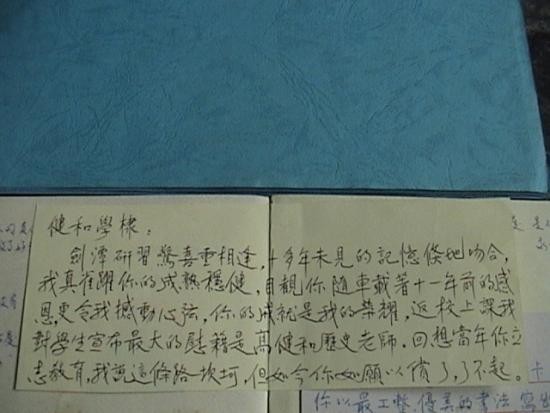 健和學棣：
劍潭研習驚喜重相逢，十多年未見的記憶倏地吻合，
我真雀躍你的成熟穩健，目親你隨車載著十一年前的感
恩更令我撼動心弦，你的成就是我的榮耀，返校上課我
對學生宣布最大的慰藉是高健和歷史老師，回想當年你立
志教育，我說這條路坎坷，但如今你如願以償了，了不起。
你以最工整優美的書法寫出